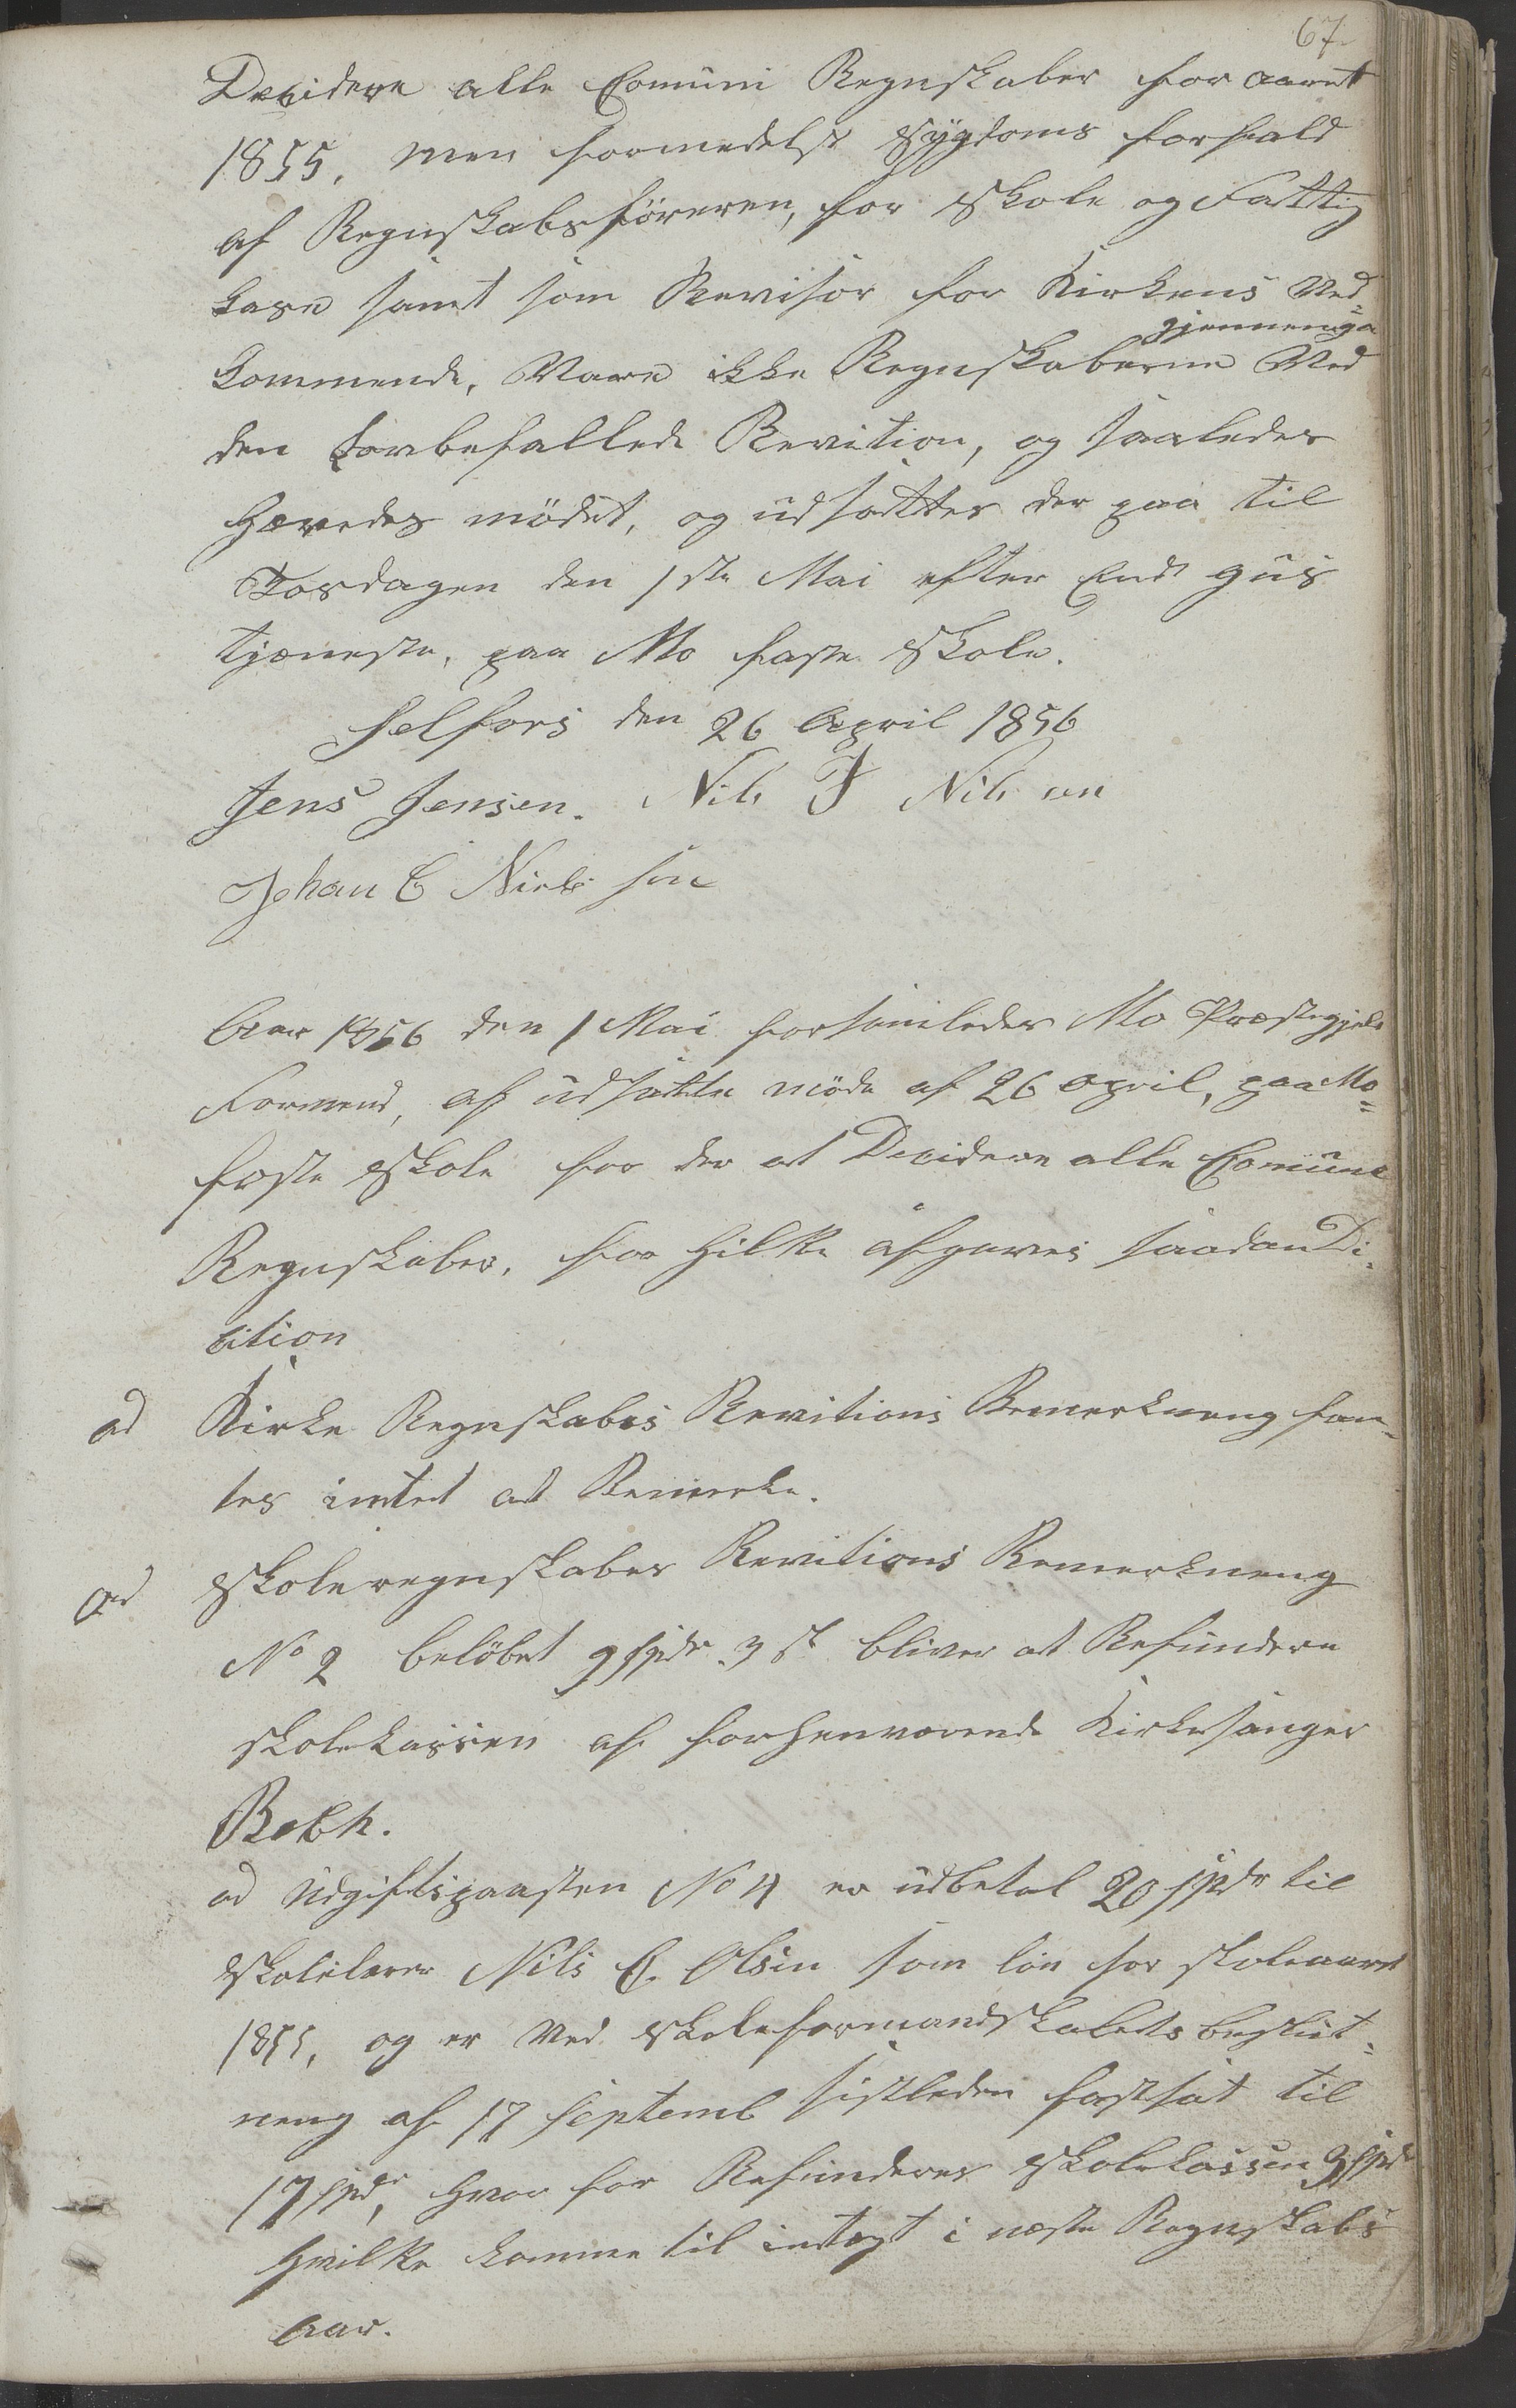 67.
Decidere alle Comuni Regnskaber for aaret
1855, men formedelst Sygdoms forfald
af Regnskabsföreren, for Skole og Fattig
kasse samt som Revisor for Kirkens Ved-
gjennemga
kommende, Vare ikke Regnskaberne Ved
den forbefallede Revition, og saaledes
Hævedes mödet, og udsættes der paa til
Torsdagen den 1ste Mai efter Endt guds
tjæneste, paa Mo faste Skole.
Selfors den 26 April 1856
Jens Jensen. Nils J Nilsen
Johan C Nielssen
Aar 1856 den 1 Mai forsamledes Mo Præstegjelds
Formend, af udsatte möde af 26 April, paa Mo
faste Skole for der at Decidere alle Comune
Regnskaber, for Hilke afgaves saadan De-
cition
ad Kirke Regnskabes Revitions Bemerkneng fan-
tes intet at Bemerke.
ad Skoleregnskabes Revitions Bemerkneng
No 2 belöbet 9 spdr 3 s bliver at Refundere
skolekassen af forhenværende Kirkesanger
ad Udgiftspaasten No 4 er udbetal 20 spdr til
Skolelærer Nils C. Olsen som lön for skoleaaret
1855, og er Ved Skoleformandskabets beslut-
neng af 17 Septemb sistleden fastsat til
17 spdr, hvor for Refunderes Skolekassen 3 spdr
Hvilke komme til indtegt i næste Regnskabs
aar.